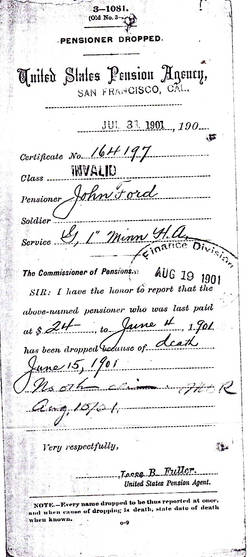 3-1081.
(Old No. 3-
PENSIONER DROPPED.
United States Pension Agency,
SAN FRANCISCO, CAL.
JUL 31 1901, 190
Certificate No. 164197
Class INVALID
Pensioner John Ford
Soldier
Service G, 1" Minn H.A.
Finance Division
The Commissioner of Pensions. AUG 19 1901
SIR: I have the honor to report that the
above-named pensioner who was last paid
at $ 24 to June 4 1901
has been dropped because of death
June 15, 1901
Aug. 15/01.
Very respectfully,
Jesse B. Fuller.
United States Pension Agent.
NOTE.—Every name dropped to be thus reported at once,
and when cause of dropping is death, state date of death
when known.